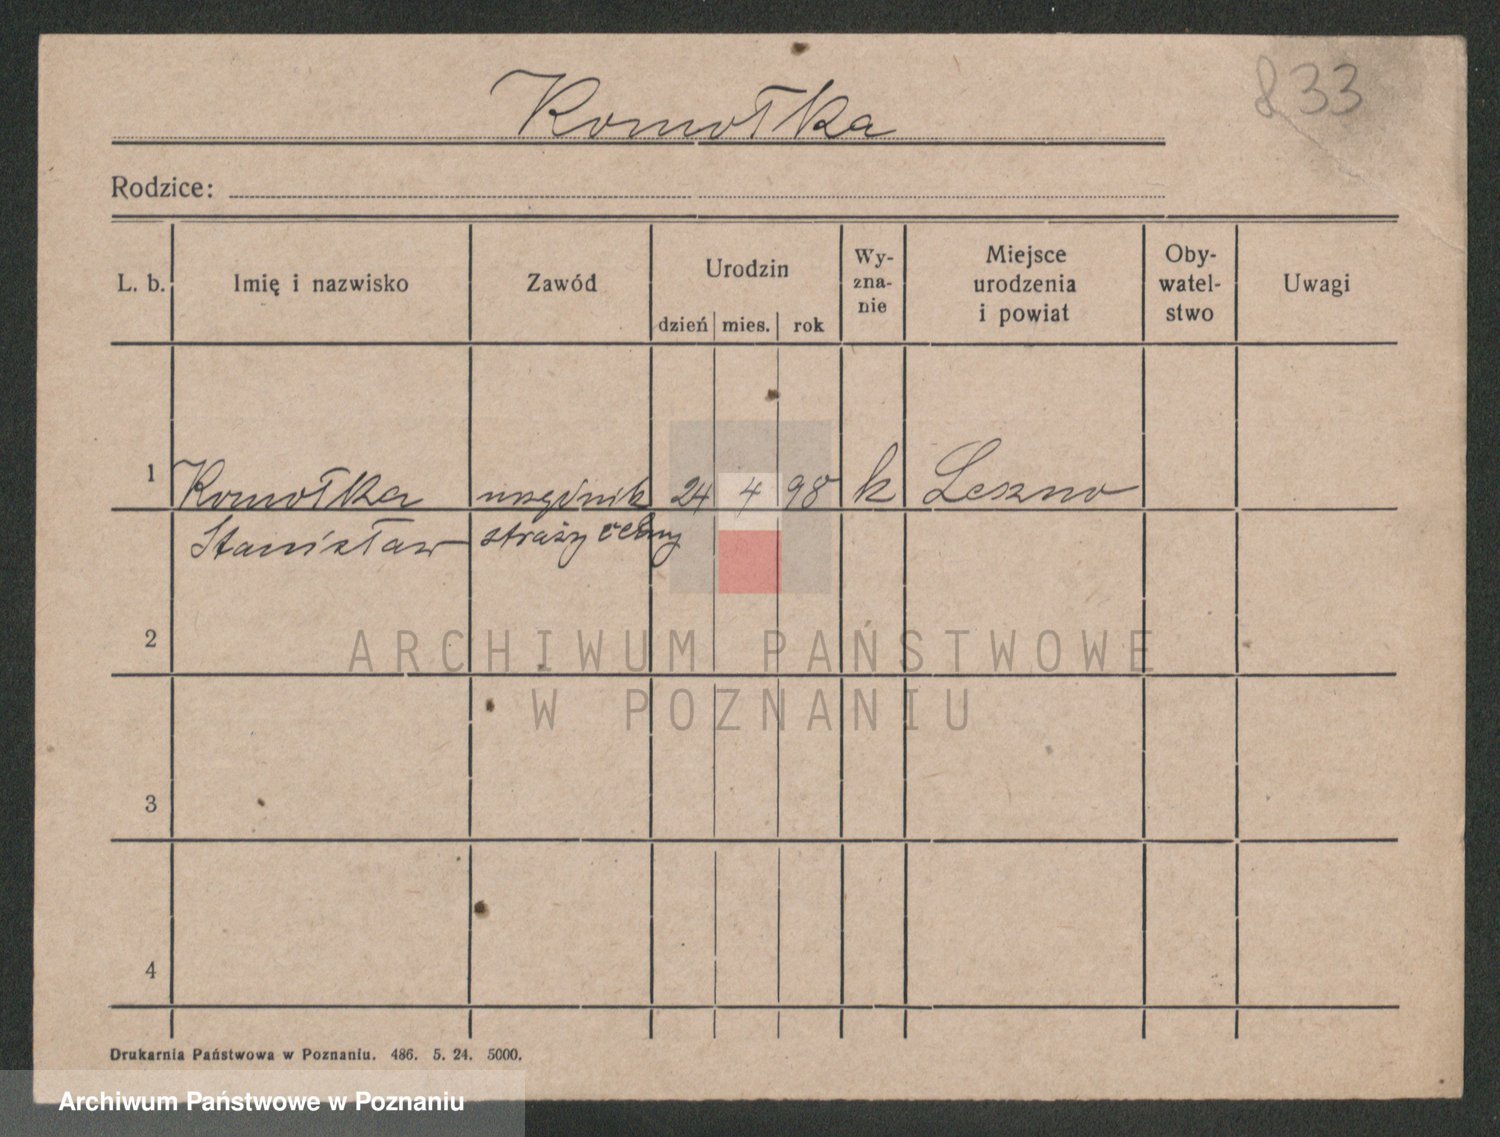 833
Komołka
Rodzice:
L. b. Imię i nazwisko Zawód Urodzin dzień mies. rok Wy-zna-nie Miejsce urodzenia i powiat Oby-watel-stwo Uwagi
1 Komołka urzędnik 24 4 98 k Leszno
Stanisław straży celny
2
ARCHIWUM PAŃSTWOWE
W POZNANIU
3
4
Drukarnia Państwowa w Poznaniu. 486. 5. 24. 5000.
Archiwum Państwowe w Poznaniu